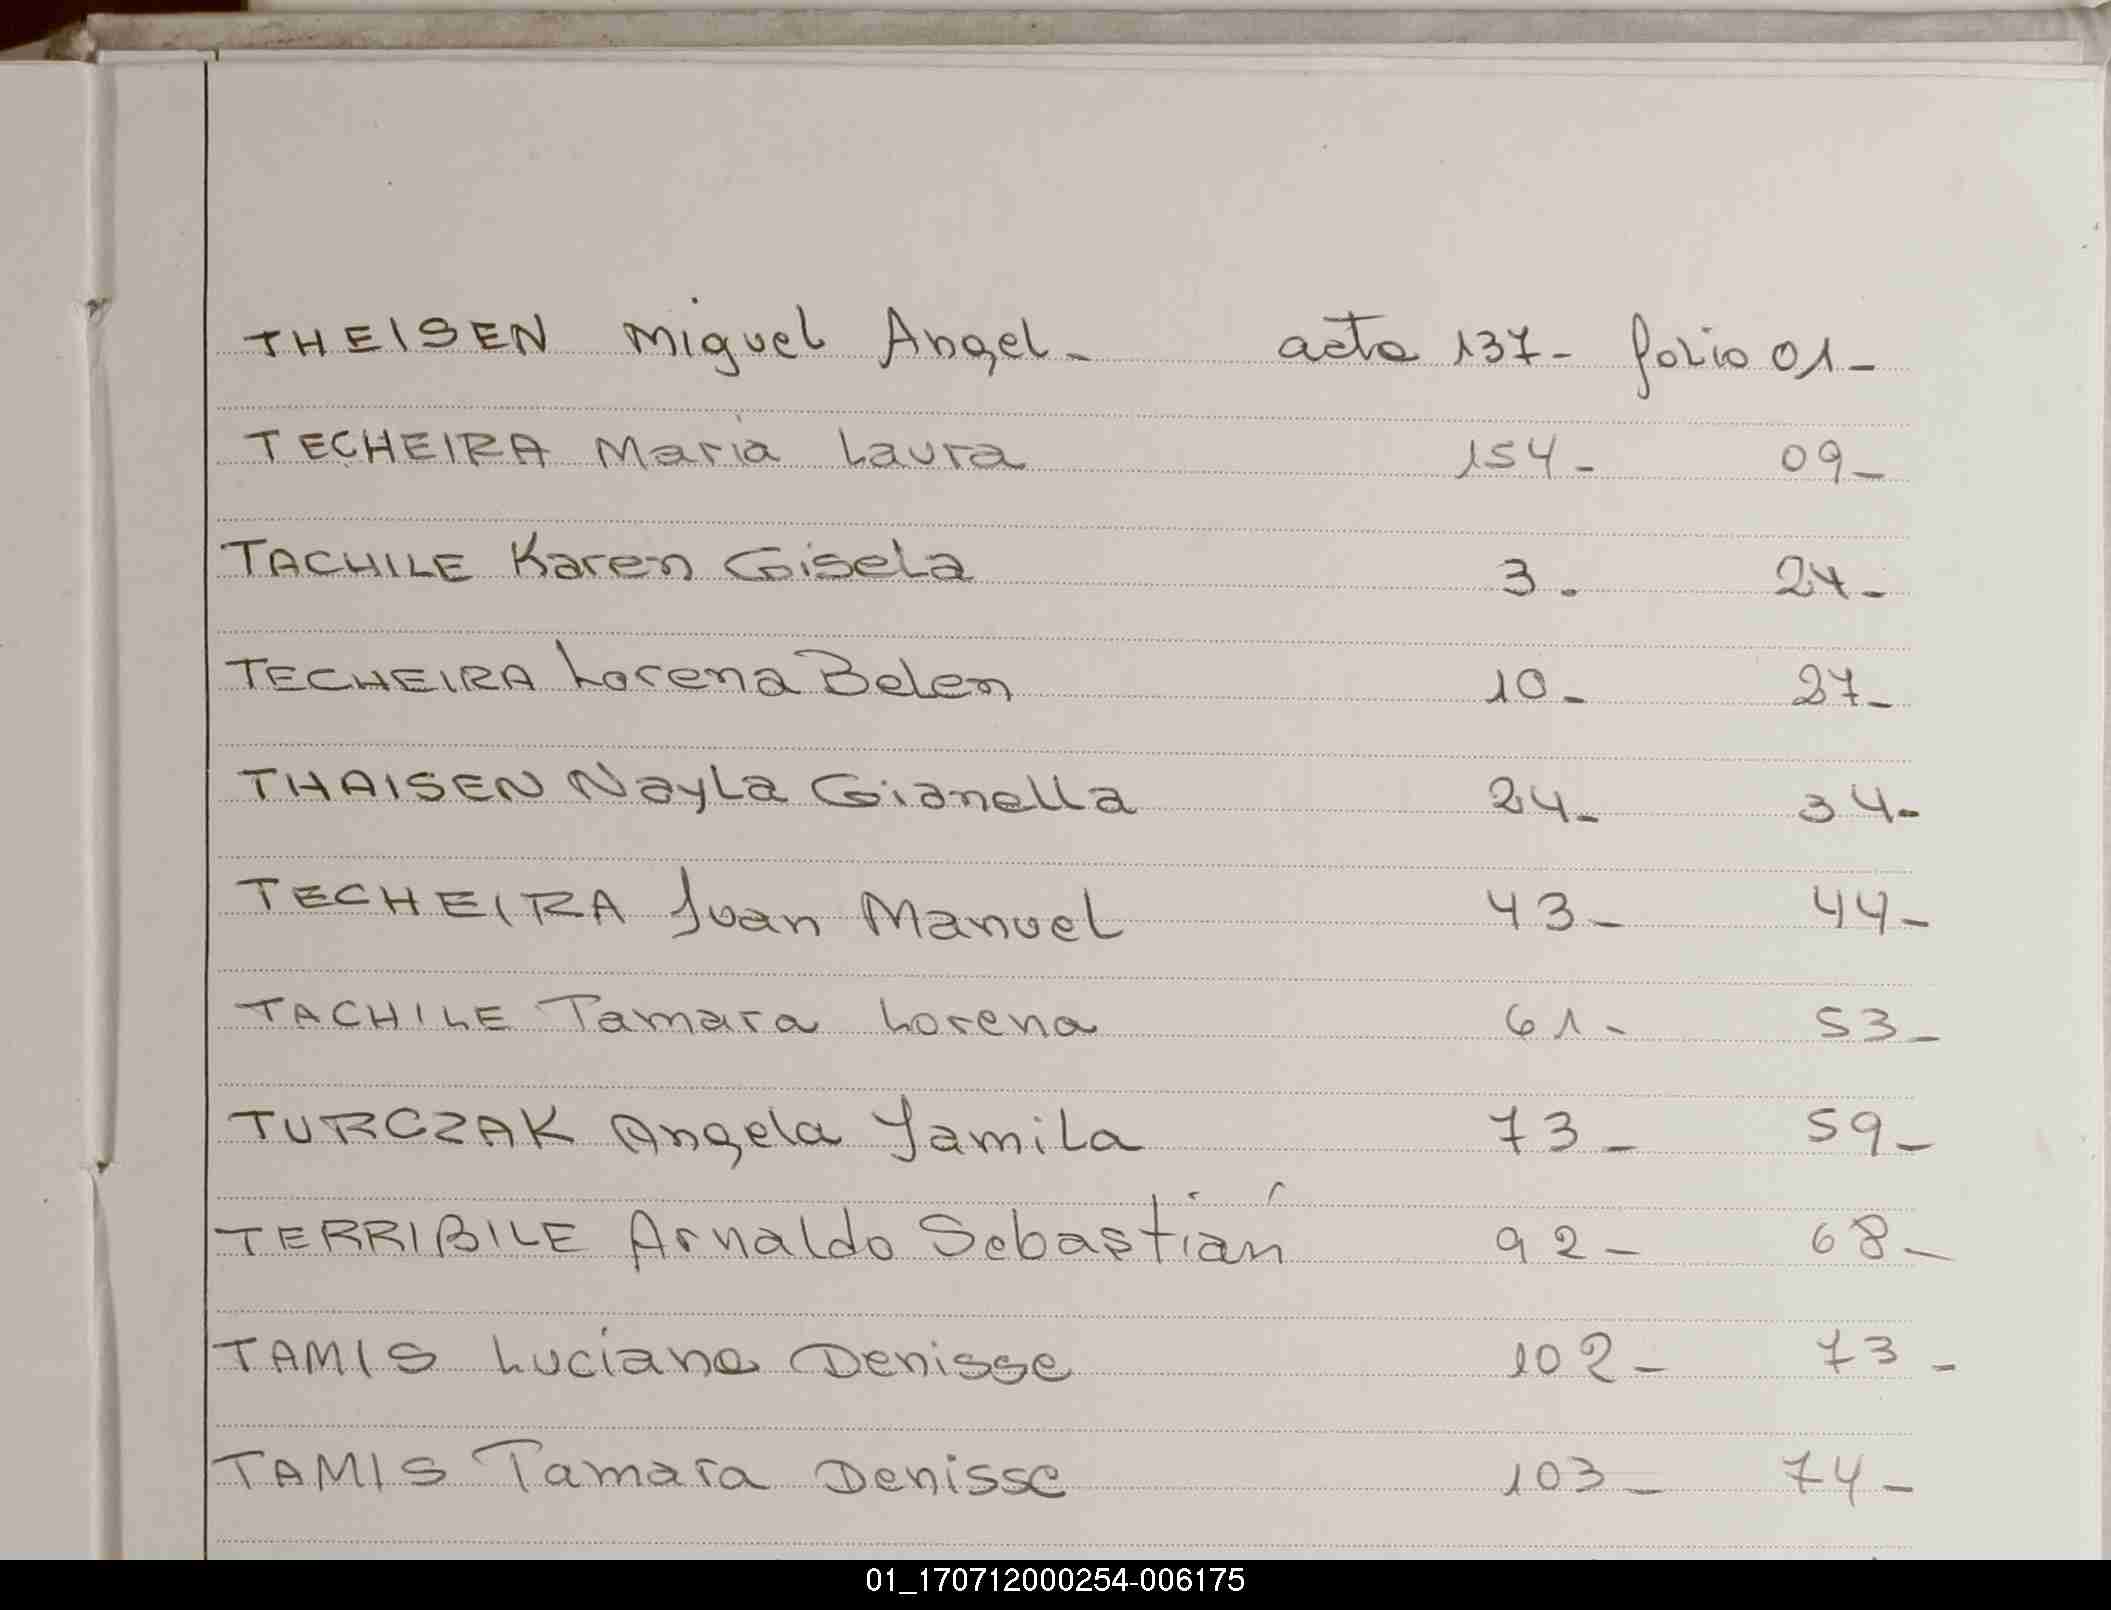 THEISEN Miguel Angel- acta 137- folio 01-
TECHEIRA Maria Laura 154- 09-
TACHILE Karen Gisela 3. 24-
TECHEIRA Lorena Belen 10- 27-
THAISEN Nayla Gianella 24- 34-
TECHEIRA Juan Manuel 43- 44-
TACHILE Tamara Lorena 61- 53-
TURCZAK Angela Yamila 73- 59-
TERRIBILE Arnaldo Sebastián 92- 68-
TAMIS Luciana Denisse 102- 73-
TAMIS Tamara Denisse 103- 74-
01_170712000254-006175